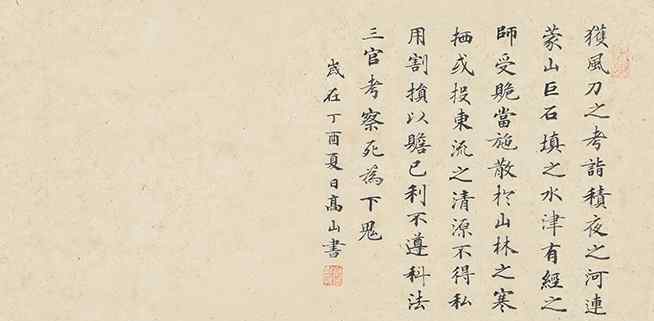 獲風刀之考詣積夜之河連
蒙山巨石填之水津有經之
師受賂當施散於山林之寒
栖或投東流之清源不得私
用割損以贍己利不遵科法
三官考察死為下鬼
歲在丁酉夏日高山書